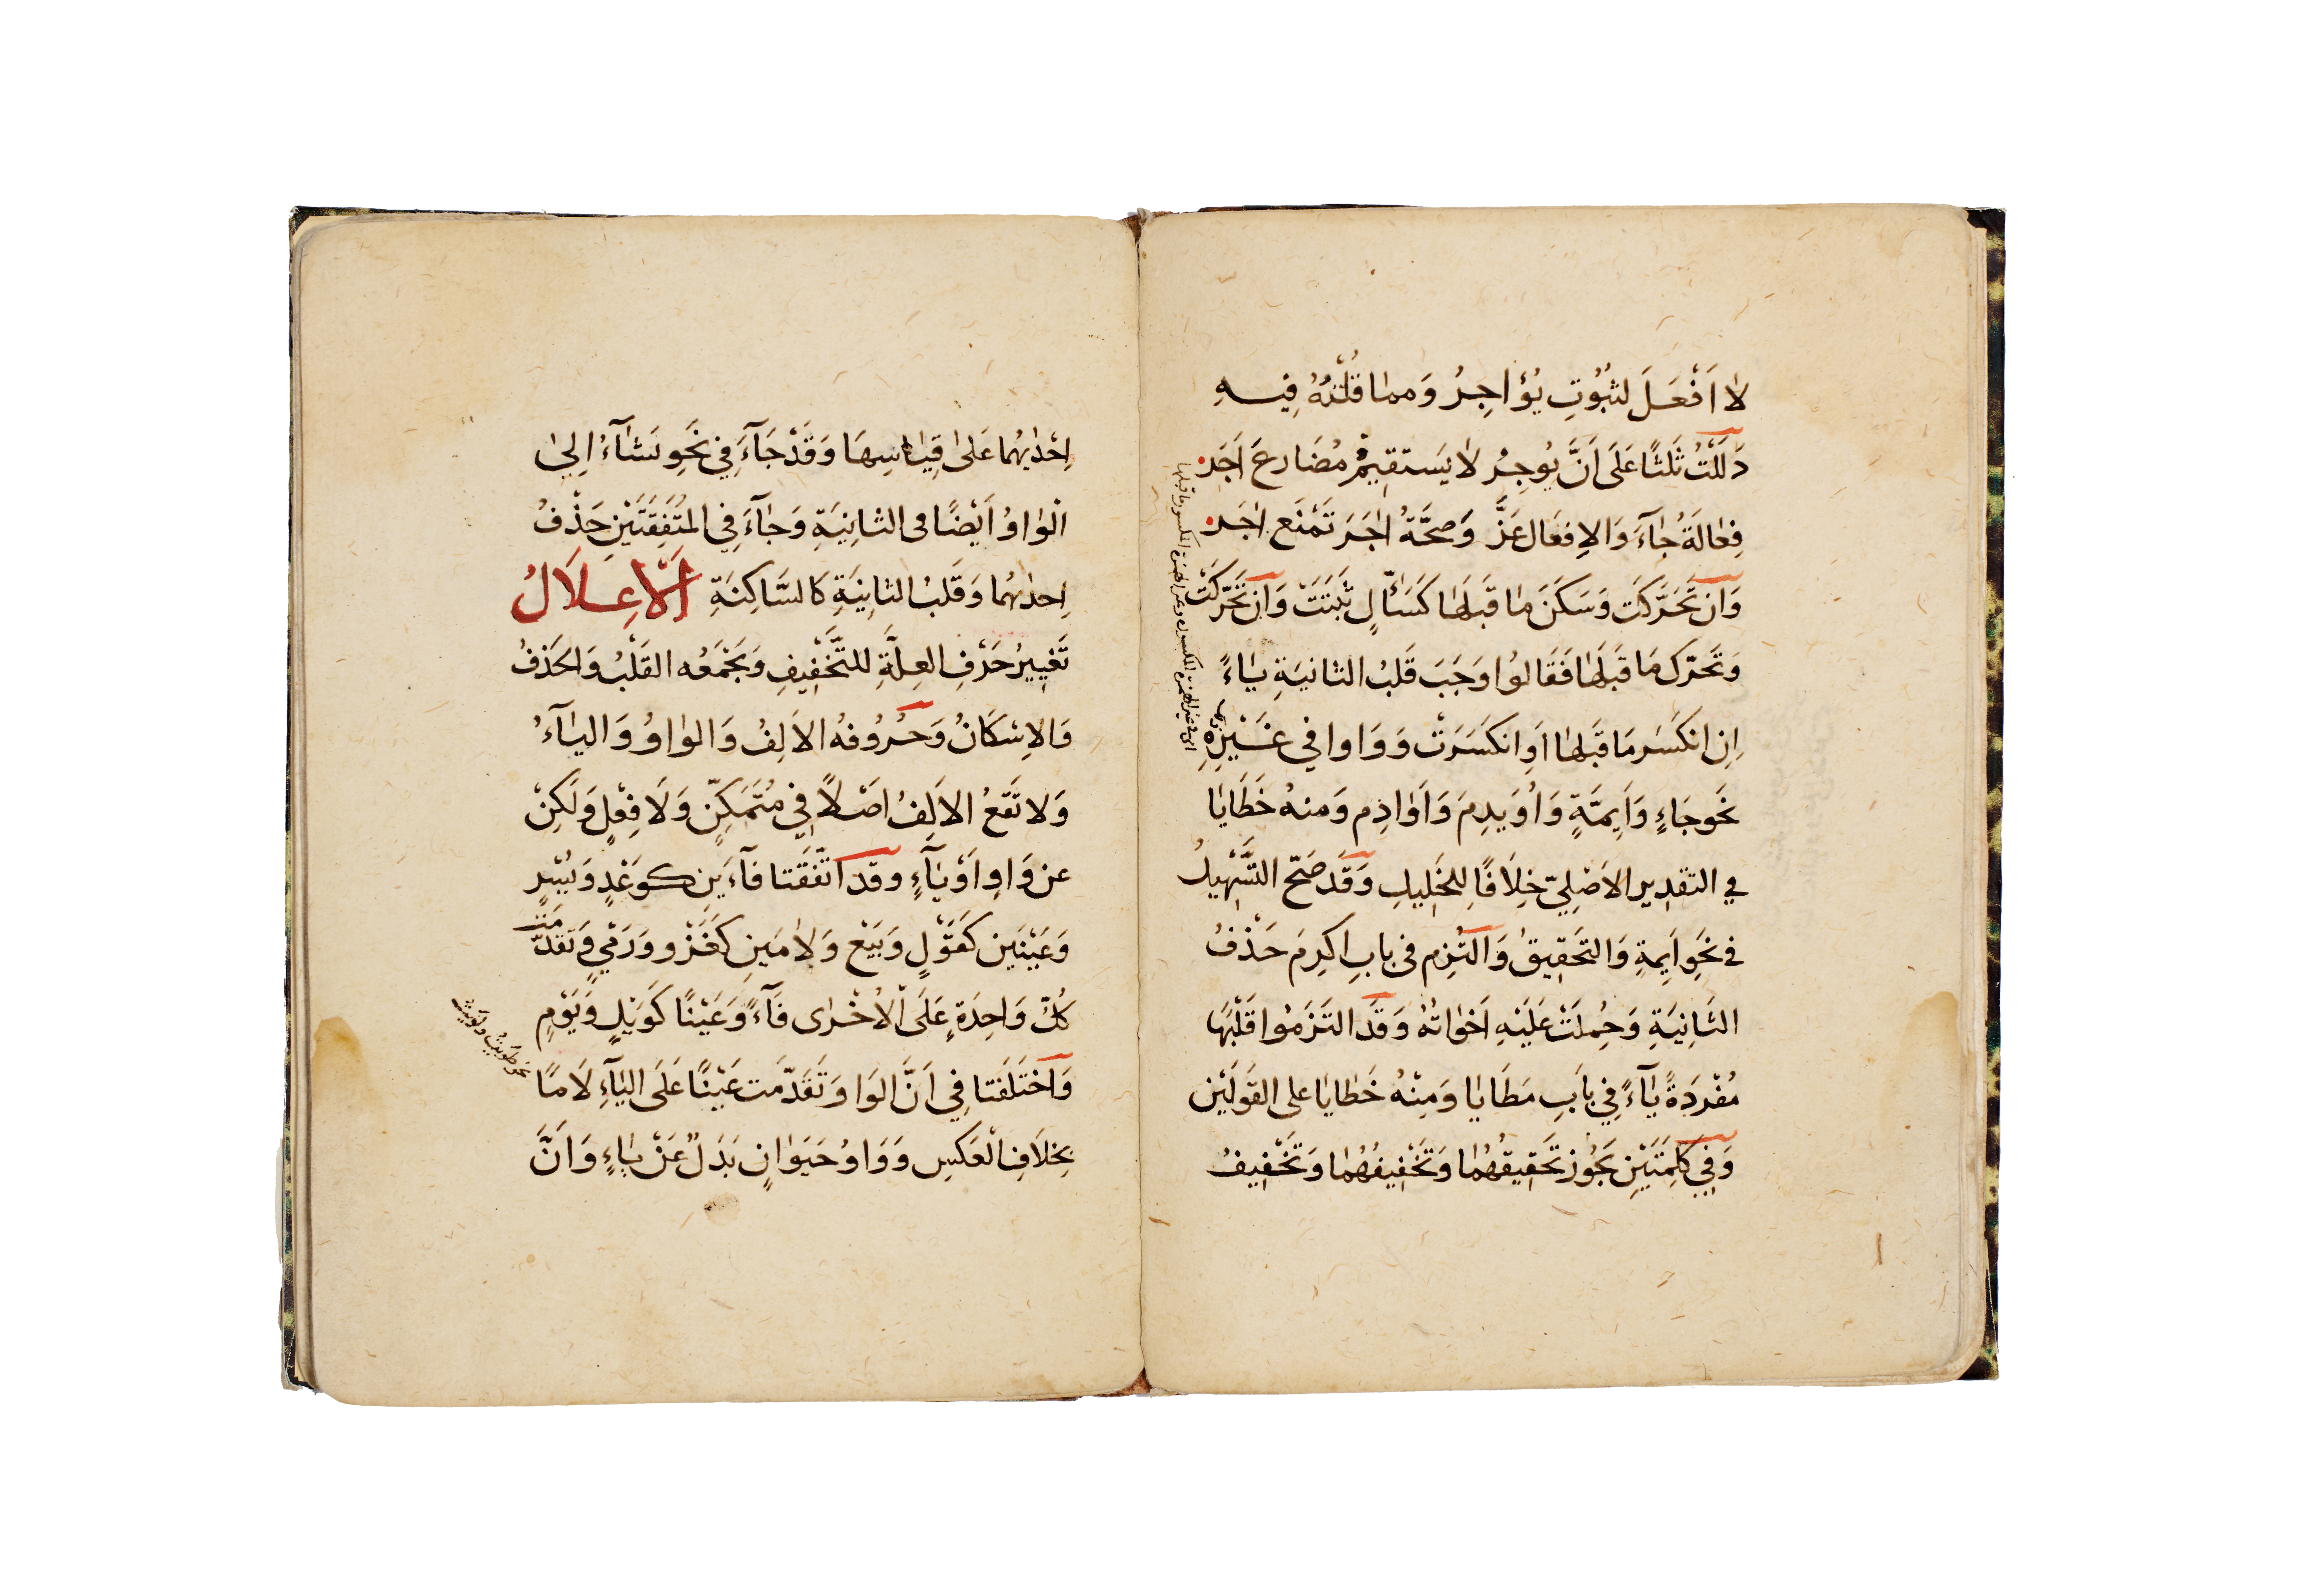 لا اَفْعَلَ لثُبُوتِ يُؤاجِرُ وَمما قُلْتُهُ فِيهِ
دَلَلْتُ ثَلثًا عَلَى اَنَّ يُوجِرُ لا يَستقِيمُ مُضَارعَ اَجَرَ
فِعالَةُ جَآءَ وَالاِفعَال عَزَّ وَصحَّةُ اٰجَرَ تَمْنَع اٰجَرَ
وَاِن تَحَرَّكَت وَسَكَنَ مَا قَبلهَا كَسَأّلٍ ثَبَتَتْ وَاِن تَحَرَّكَتْ
وَتَحَرّكَ مَا قَبلَهَا فَقَالوُا وَجَبَ قَلبُ الثانيَةِ يَاءً
اِنِ انكَسَر مَا قَبلهَا اَوِ انكَسَرَتْ وَوَاوا في غَيْرِهِ
نَحو جَاءٍ وَاَيِمَّةٍ وَاُوَيدِمَ وَاَوَادِم وَمنهُ خَطَايَا
في التقدِيرِ الاَصْلِيّ خِلَافًا لِلخَلِيلِ وَقَدْ صَحّ التَّسْهِيلُ
في نَحوِ اَيِمةِ وَالتَحَقِيقُ وَالتُزِم فى بابِ اكرِمَ حَذْفُ
الثَانِيَةِ وَحُمِلَتْ عَلَيْهِ اَخَوَاتُهُ وَقَد التَزَمُوا قَلْبَهَا
مُفْرَدَةً يَآءً فِي بَابِ مَطَايَا وَمِنْهُ خَطايَا على القَولَيْن
وَفِي كَلِمَتَيْنِ يَجُوز تَحقِيقُهُمَا وَتَخْفِيفُهُمَا وَتَخْفِيفُ
اِحْدٰيهُما عَلىٰ قِيَاسِهَا وَقَدْ جَآءَ فِي نَحْوِ يَشَآءُ اِلىٰ
الْوَاوُ اَيْضًا فى الثانِيَةِ وَجَآءَ فِي المتَّفِقَتَيْنِ حَذْفُ
اِحدٰىهُما وَقَلبُ الثانِيَةِ كَالسَّاكِنَةِ اَلْاِعلَالُ
تَغيِيرُ حَرْفِ العِلَّةِ للتَّخْفِيفِ وَيَجْمَعُه القَلْبُ وَالحَذفُ
وَالاِسْكَانُ وَحُرُوفهُ الاَلِفُ وَالوَاوُ وَاليَآءُ
وَلا تَقَعُ الاَلِفُ اصْلاً فِي مُتَمَكِّنٍ وَلَا فِعْلٍ وَلَكِنْ
عن وَاوٍ اَوْ يَآءٍ وقد اتّفَقَتا فآءَيَنِ كَوعْدٍ وَيُسْرٍ
وَعَيْنَيَنِ كَقَوْلٍ وَبَيْع وَلاَمَينِ كَغَزْو وَرَمْيٍ وَتقدّمَتْ
كُلُّ وَاحِدَةٍ عَلَى الْاُخْرَى فَآءً وَعَيْنًا كَوَيْلٍ وَيَوْمٍ
وَاخْتَلَفَتا فِي اَنَّ الوَاوَ تَقَدّمَت عَيْنًا عَلَى اليَآءِ لَامًا
بِخِلَافِ الْعَكسِ وَوَاوُ حَيَوانٍ بَدَلٌ عَنْ يَاءٍ وَاَنَّ